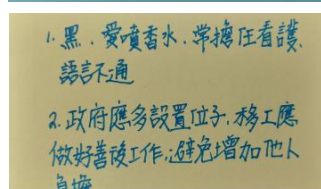 1. 黑、愛噴香水、常擔任看護、
語言不通
2. 政府應多設置位子,移工應
做好善後工作,避免增加他人
負擔